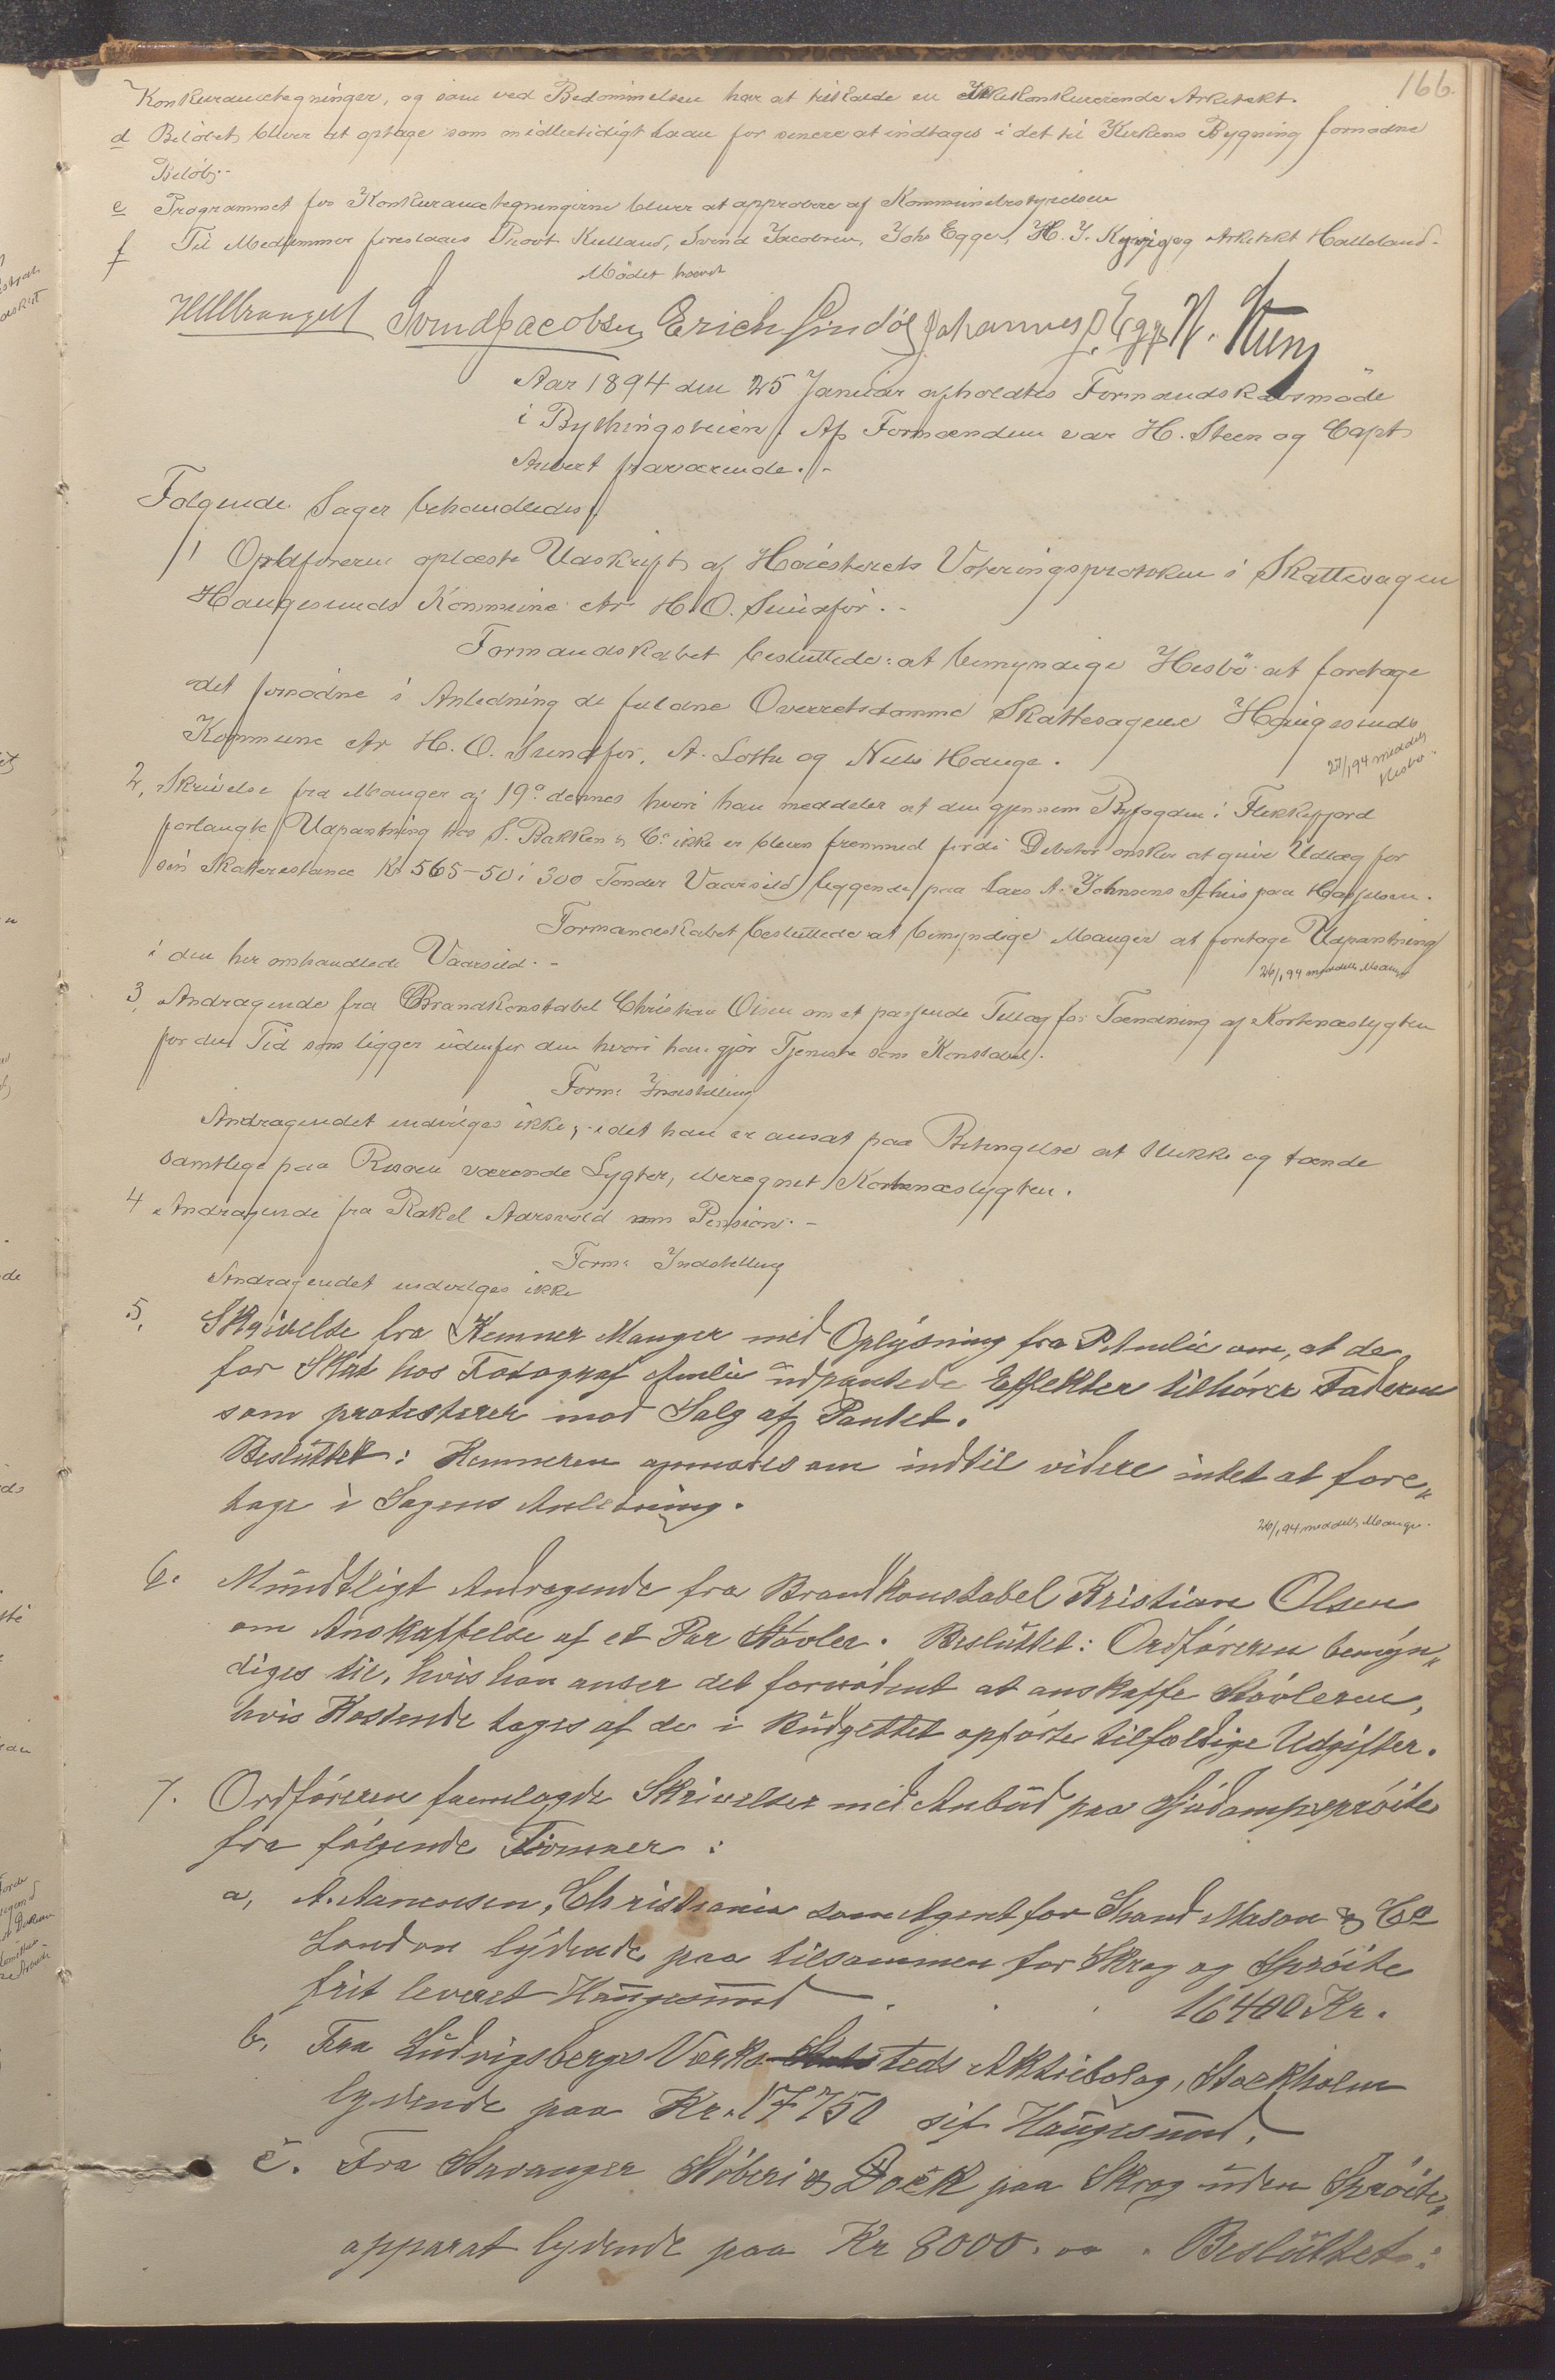 166.
Konkurancetegninger, og som ved Bedømmelsen har at tilkalde en ikkekonkurerende Arkitekt.
d Beløbet bliver at optage som midlertidigt Laan for senere at indtages i det til Kirkens Bygning fornødne
Beløb.-
e Programmet for Konkurancetegningerne bliver at approbere af Kommunebestyrelsen
f Til Medlemmer foreslaaes Provst Kielland, Svend Jacobsen, Johs Egge, H. J. Kyvig og Arkitekt Halleland.
Mødet hævet
Svend Jacobsen Erich Lindøe Johannes J. Egge
Aar 1894 den 25 Januar afholdtes Formandskabsmøde
i Bythingsveien. Af Formændene var H. Steen og Capt
fraværende. -
Følgende Sager behandledes:
1 Ordføreren oplæste Udskrift af Høiesterets Voteringsprotokol i Skattesagen
Haugesunds Kommune ctr H. O. Sundfør. -
Formandskabet besluttede: at bemyndige Hesbø at foretage
det fornødne i Anledning de faldne Overretsdomme Skattesagene Haugesunds
Kommune ctr H. O. Sundfør, A. Lothe og Niels Hauge.
27/1 94 meddelt
Hesbø.
2, Skrivelse fra Mauger af 19de dennes hvori han meddeler at den gjennem Byfogden i Flekkefjord
forlangte Udpantning hos S. Bakken & Co ikke er bleven fremmed fordi Debitor ønsker at give Udlæg for
sin Skatterestance Kr 565-50 i 300 Tønder Vaarsild beggende paa Lars A. Johnsens Søhus paa Hasseløen.
Formandskabet besluttede at bemyndige Mauger at foretage Udpantning
i den her omhandlede Vaarsild. -
26/1 94 meddelt Mauger
3, Andragende fra Brandkonstabel Christian Olsen om et passende Tillæg for Tænding af Kortenæslygten
for den Tid som ligger udenfor den hvori han gjør Tjeneste som Konstabel.
Form: Indstilling
Andragendet indvilges ikke, idet han er ansat paa Betingelse at slukke og tænde
samtlige paa Risøen værende Lygter, iberegnet Kortenæslygten.
4 Andragende fra Rakel Aarsvold om Pension. -
Form: Indstilling
Andragendet indvilges ikke
5, Skrivelse fra Kemner Mauger med Oplysning fra P. Amlie om, at de
for Skat hos Fotograf Amlie udpantede Effekter tilhører Faderen
som protesterer mod Salg af Pantet.
Besluttet: Kemneren anmodes om indtil videre intet at fore„
tage i Sagens Anledning.
26/1 94 meddelt Mauger.
6. Mündtligt Andragende fra Brandkonstabel Kristian Olsen
om Anskaffelse af et Par Støvler. Besluttet: Ordføreren bemyn„
diges til, hvis han anser det fornødent at anskaffe Støvlerne,
hvis Kostende tages af de i Budgettet opførte tilfældige Udgifter.
7. Ordføreren fremlagde Skrivelser med Anbud paa Sjødampsprøite
fra følgende Firmaer:
a, A. Aanonsen, Christiania som Agent for Shand Mason & Co
London lydende paa tilsammen for Skrog og Sprøite
frit leveret Haugesund 16400 Kr.
b, Fra Ludvigsbergs Værksteds Aktiebolag, Stockholm
lydende paa Kr. 17750 sif Haugesund.
c. Fra Stavanger Støberi & Dock paa Skrog uden Sprøite„
apparat lydende paa Kr 8000.00. Besluttet: